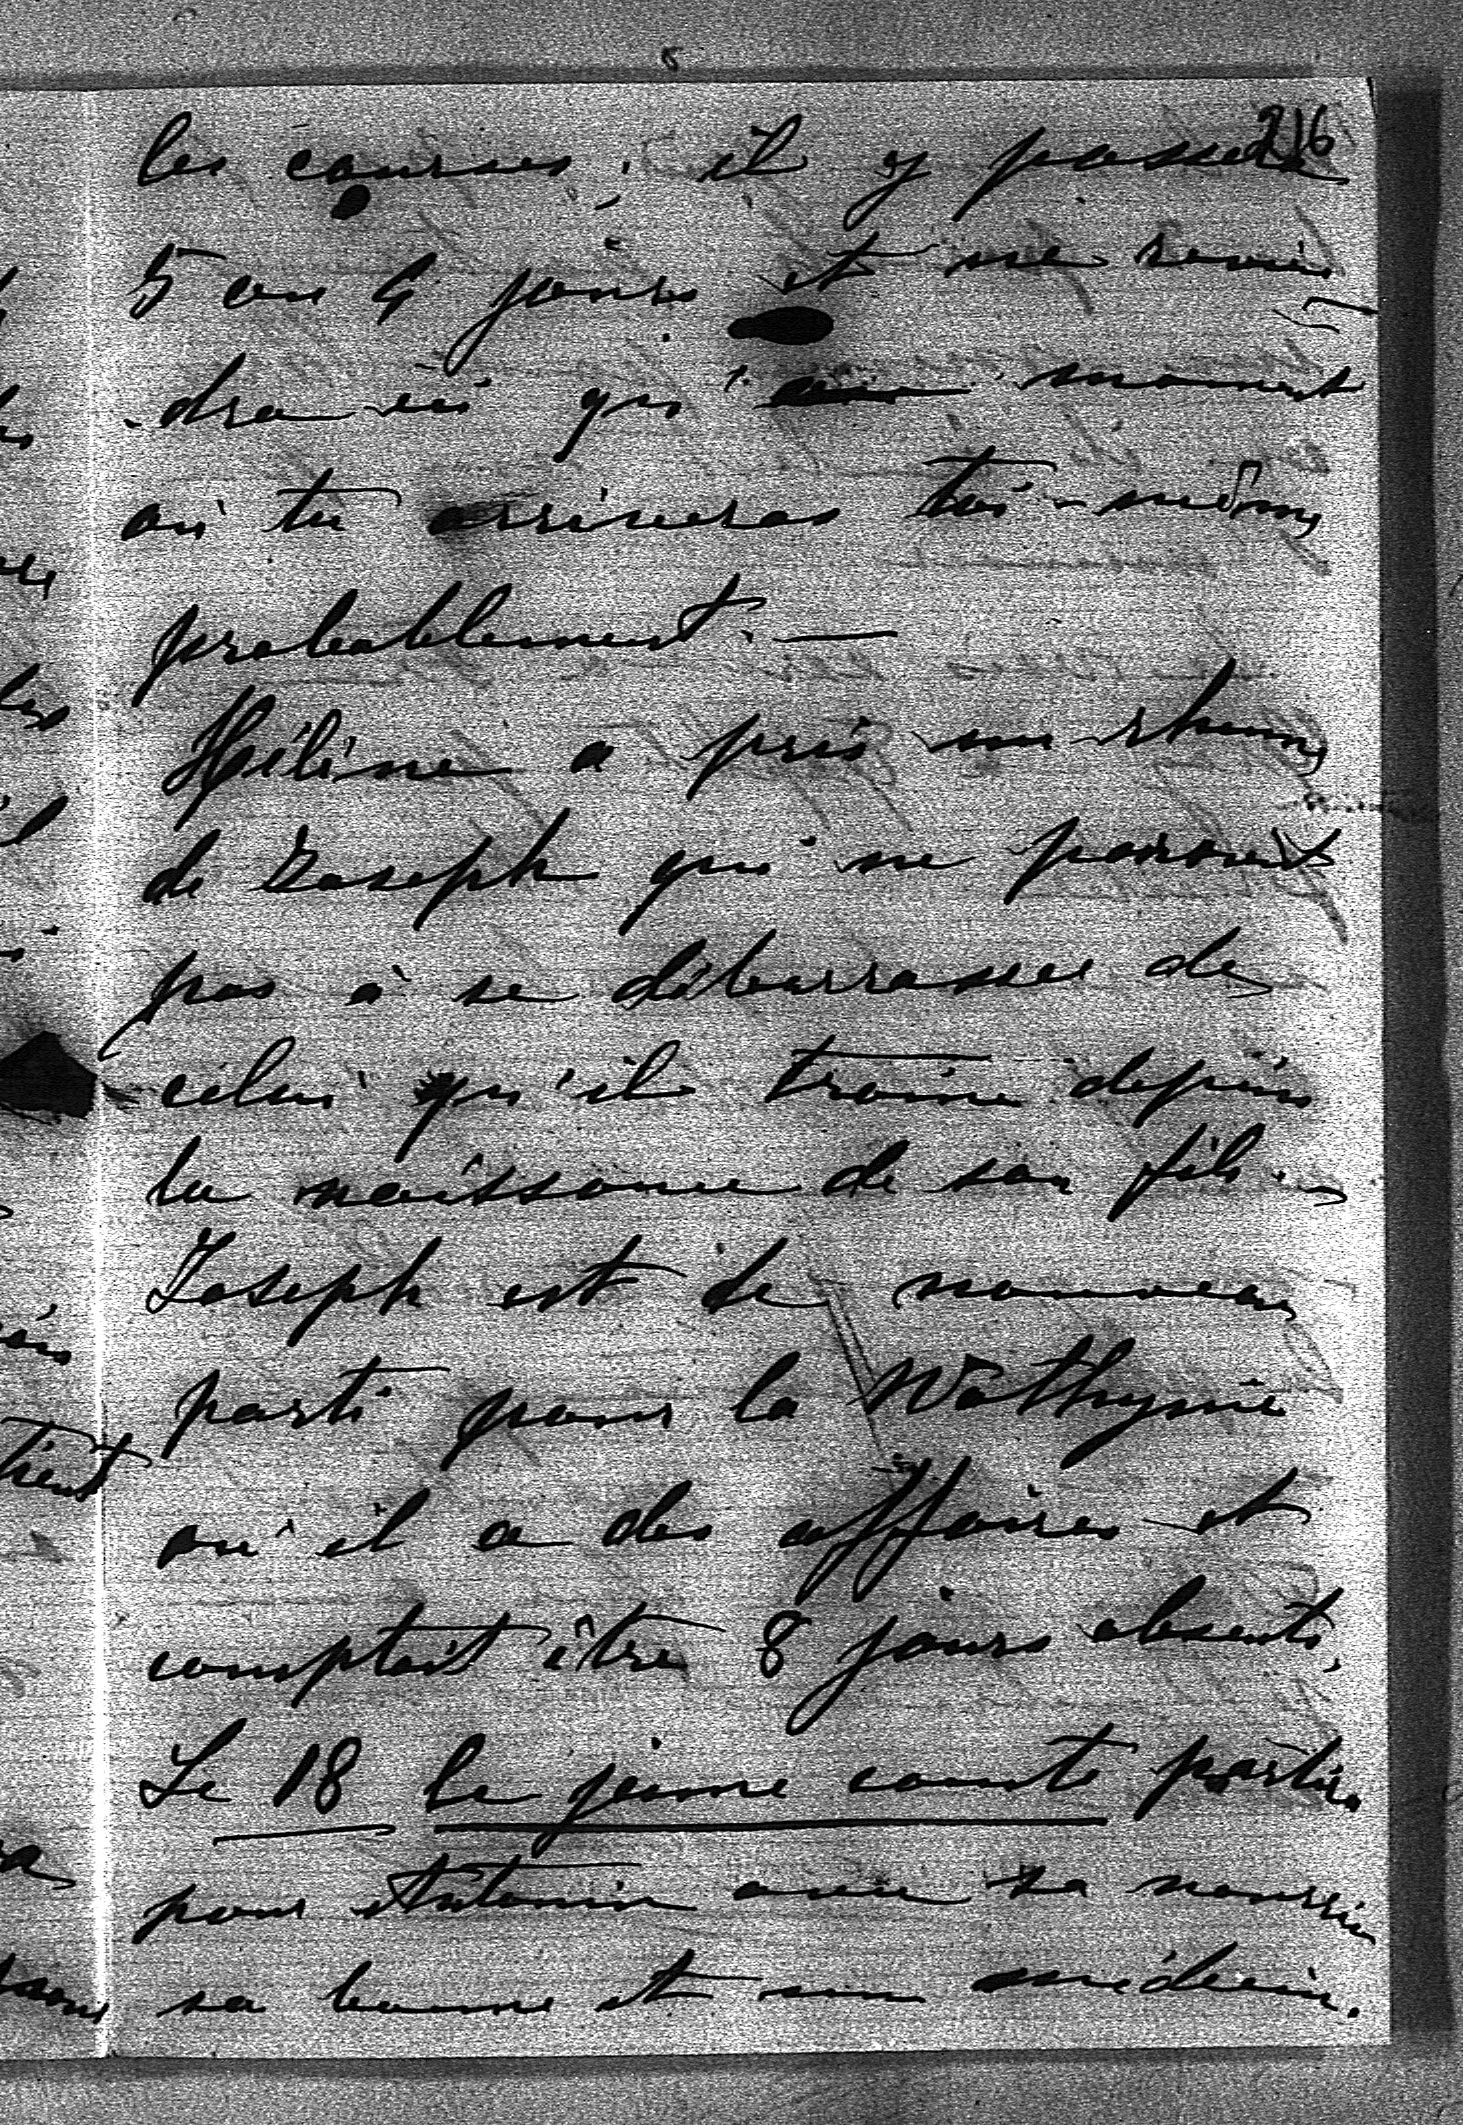 216
les courses, il y passera
5 ou 6 jours et ne revien
-dra ici qu'au moment
où tu arriveras toi-même
probablement. —
Hélène a pris un rhume
de Joseph qui ne parvient
pas à se débarrasser de
celui qu'il traîne depuis
la naissance de son fils.
Joseph est de nouveau
parti pour la Wolhynie
où il a des affaires et
comptait être 8 jours absent.
Le 18 le jeune comte partira
pour Antonin avec sa nourrice
sa bonne et son médecin.